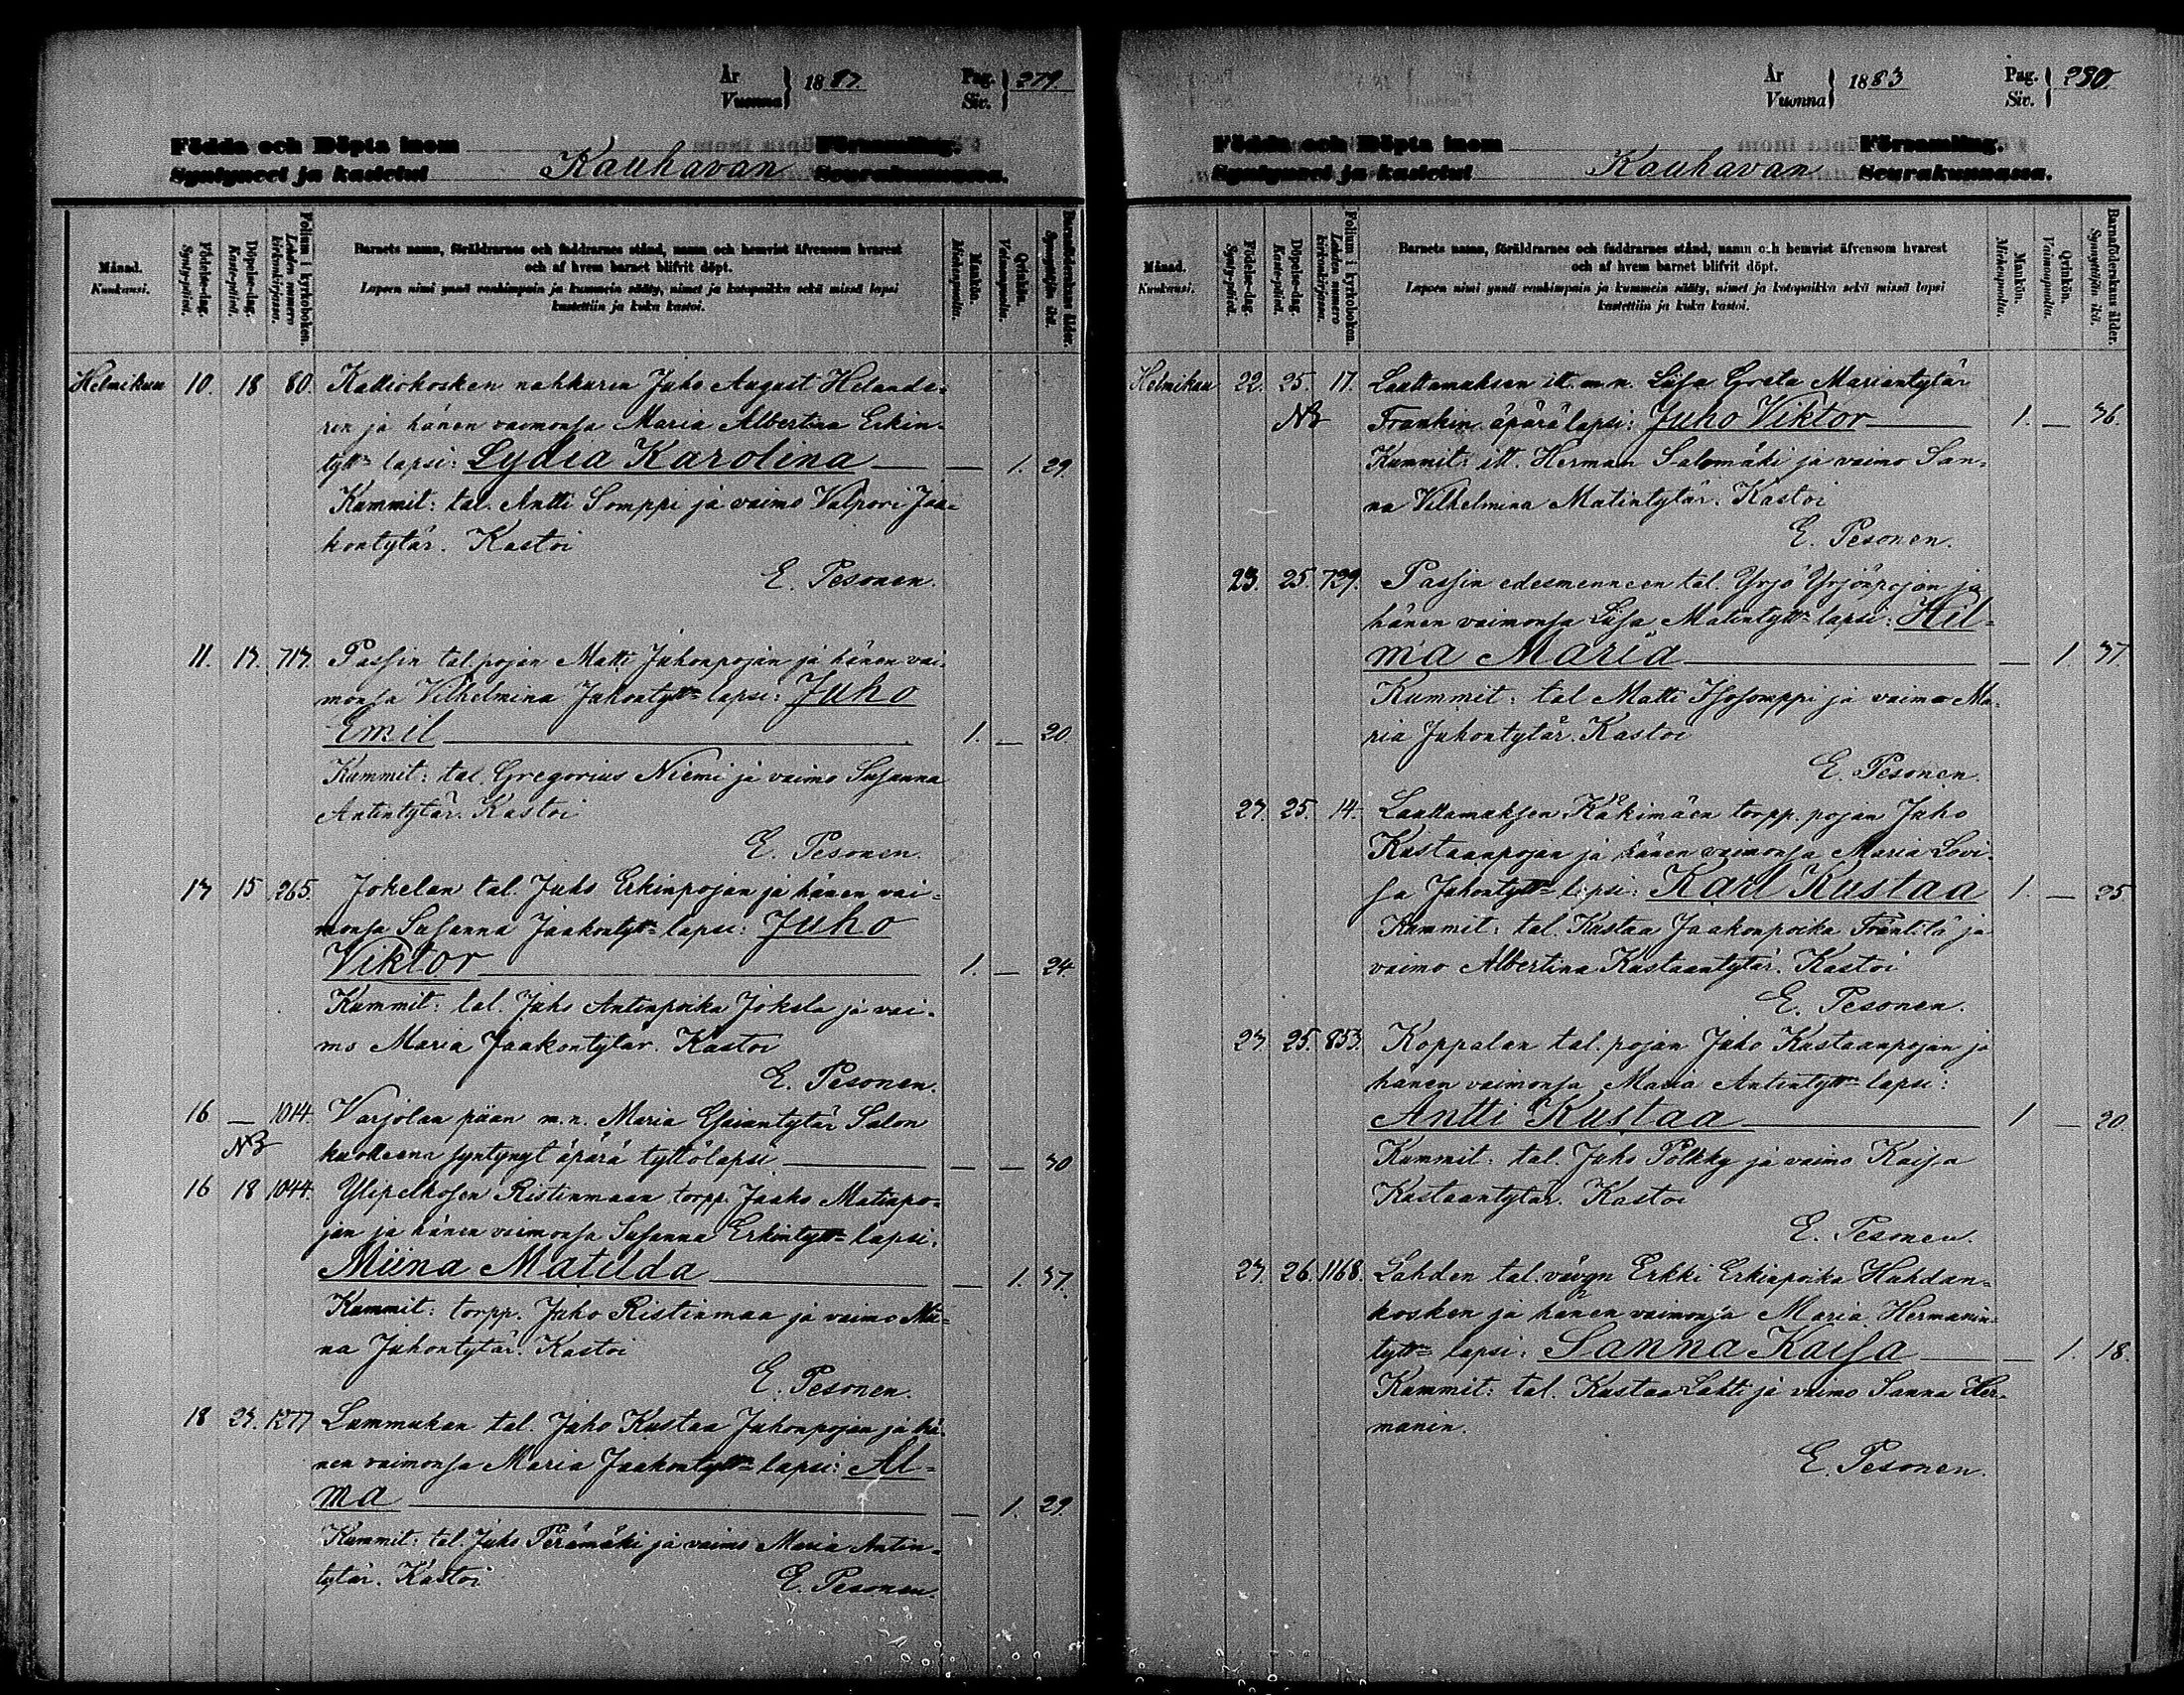 År
Vuonna
1883.
Pag.
Siv.
279.
Födda och Döpta inom Församling.
Syntyneet ja kastetut Kauhavan Seurakunnassa.
Månad.
Kuukausi.
Födelse-dag.
Synty-päivä.
Döpelse-dag.
Kaste-päivä.
Folium i kyrkoboken.
Lehden numero kirkonkirjassa.
Barnets namn, föräldrarnes och faddrarnes stånd, namn och hemvist äfvensom hvarest
och af hvem barnet blifvit döpt.
Lapsen nimi ynnä vanhimpain ja kummein sääty, nimet ja kotopaikka sekä missä lapsi
kastettiin ja kuka kastoi.
Mankön.
Miehenpuolia.
Qvinkön.
Vaimonpuolia.
Barnaföderskans ålder.
Synnyttäjän ikä.
Helmikuu 10. 18 80. Kalliokosken nahkurin Juho August Helande-
rin ja hänen vaimonsa Maria Albertina Erkin-
tytt= lapsi: Lydia Karolina — — 1. 29.
Kummit: tal. Antti Somppi ja vaimo Valpori Jaa-
kontytär. Kastoi
E. Pesonen.
11. 13. 713. Passin tal. pojan Matti Juhonpojan ja hänen vai-
monsa Vilhelmina Juhontytt= lapsi: Juho
Emil — 1. — 20.
Kummit: tal. Gregorius Niemi ja vaimo Susanna
Antintytär. Kastoi
E. Pesonen.
13 15 265. Jokelan tal. Juho Erkinpojan ja hänen vai-
monsa Susanna Jaakontytt= lapsi: Juho
Viktor — 1. — 24.
Kummit: tal. Juho Antinpoika Jokela ja vai-
mo Maria Jaakontytär. Kastoi
E. Pesonen.
16 — 1014. Varjolan pään m.n. Maria Esaiantytär Salon
NB kuolleena syntynyt äpärä tyttölapsi — — — 30
16 18 1044. Ylipelkosen Ristinmaan torpp. Jaako Matinpo-
jan ja hänen vaimonsa Susanna Erkintytt= lapsi:
Miina Matilda — — 1. 37.
Kummit: torpp. Juho Ristinmaa ja vaimo Mii-
na Juhontytär. Kastoi
E. Pesonen.
18 23. 1277 Lummukan tal. Juho Kustaa Juhonpojan ja hä-
nen vaimonsa Maria Jaakontytt= lapsi: Al-
ma — — 1. 29.
Kummit: tal. Juho Perämäki ja vaimo Maria Antin-
tytär. Kastoi E. Pesonen.
År
Vuonna
1883
Pag.
Siv.
280.
Födda och Döpta inom Församling.
Syntyneet ja kastetut Kauhavan Seurakunnassa.
Månad.
Kuukausi.
Födelse-dag.
Synty-päivä.
Döpelse-dag.
Kaste-päivä.
Folium i kyrkoboken.
Lehden numero kirkonkirjassa.
Barnets namn, föräldrarnes och faddrarnes stånd, namn och hemvist äfvensom hvarest
och af hvem barnet blifvit döpt.
Lapsen nimi ynnä vanhimpain ja kummein sääty, nimet ja kotopaikka sekä missä lapsi
kastettiin ja kuka kastoi.
Mankön.
Miehenpuolia.
Qvinkön.
Vaimonpuolia.
Barnaföderskans ålder.
Synnyttäjän ikä.
Helmikuu 22. 25. 17. Luttamuksen itt. m.n. Liisa Greta Mariantytär
NB Frankin äpärä lapsi: Juho Viktor — 1. — 36.
Kummit: itt. Herman Salomäki ja vaimo San-
na Vilhelmina Matintytär. Kastoi
E. Pesonen.
23. 25. 729. Passin edesmenneen tal. Yrjö Yrjönpojan ja
hänen vaimonsa Liisa Matintytt= lapsi: Hil-
ma Maria — — 1 37.
Kummit: tal Matti Isosomppi ja vaimo Ma-
ria Juhontytär. Kastoi
E. Pesonen.
23. 25. 14. Luttamuksen Käkimäen torpp. pojan Juho
Kustaanpojan ja hänen vaimonsa Maria Lovi-
sa Juhontytt= lapsi: Karl Kustaa 1. — 25
Kummit: tal. Kustaa Jaakonpoika Fräntilä ja
vaimo Albertina Kustaantytär. Kastoi
E. Pesonen.
23. 25. 853. Koppalan tal. pojan Juho Kustaanpojan ja
hänen vaimonsa Maria Antintytt= lapsi:
Antti Kustaa — 1 — 20
Kummit: tal. Juho Pölkky ja vaimo Kaisa
Kustaantytär. Kastoi
E. Pesonen.
23. 26. 1168. Lahden tal. vävyn Erkki Erkinpoika Huhdan-
kosken ja hänen vaimonsa Maria Hermanin-
tytt= lapsi: Sanna Kaisa — — 1. 18.
Kummit: tal. Kustaa Lahti ja vaimo Sanna Her-
manin.
E. Pesonen.